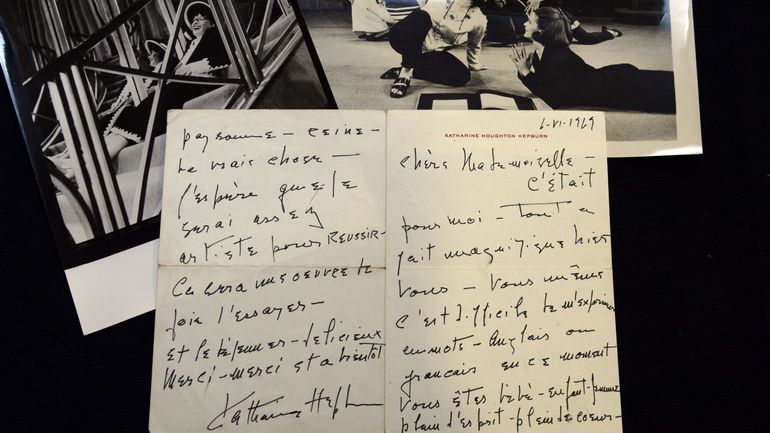 6-VI-1969
KATHARINE HOUGHTON HEPBURN
Chère Mademoiselle –
c'était
pour moi – Tout à
fait magnifique hier
Vous – Vous même
C'est difficile de m'exprimer
en mots – Anglais ou
francais en ce moment
Vous êtes bébé – enfant – femme
plein d'esprit – plein de coeur –
paysanne – reine –
La vrais chose –
j'espère que je
serai assez
artiste pour REUSSIR –
Ca sera une oeuvre de
joie l'essayer –
et le déjeuner – delicieux
Merci – merci et a bientôt
Katharine Hepburn